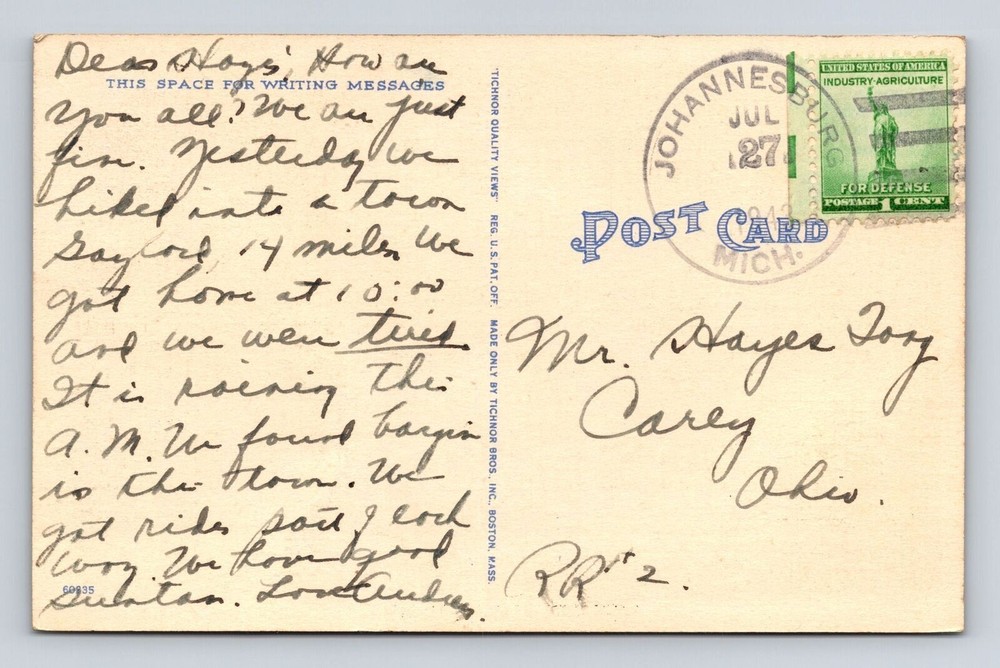 Dear Hays', How are
THIS SPACE FOR WRITING MESSAGES
you all? We are just
fine. Yesterday we
hiked into a town
Gaylord, 14 miles We
got home at 10:00
and we were tired.
It is raining this
A.M. We found bargin
in the town. We
got rides part of each
way. We have good
suntan. Love Audrey.
60835
"TICHNOR QUALITY VIEWS" REG. U.S. PAT. OFF. MADE ONLY BY TICHNOR BROS., INC., BOSTON, MASS.
POST CARD
JOHANNESBURG
JUL
27
MICH.
UNITED STATES OF AMERICA
INDUSTRY-AGRICULTURE
FOR DEFENSE
POSTAGE 1 CENT
Mr. Hayes
Carey
Ohio.
RR # 2.